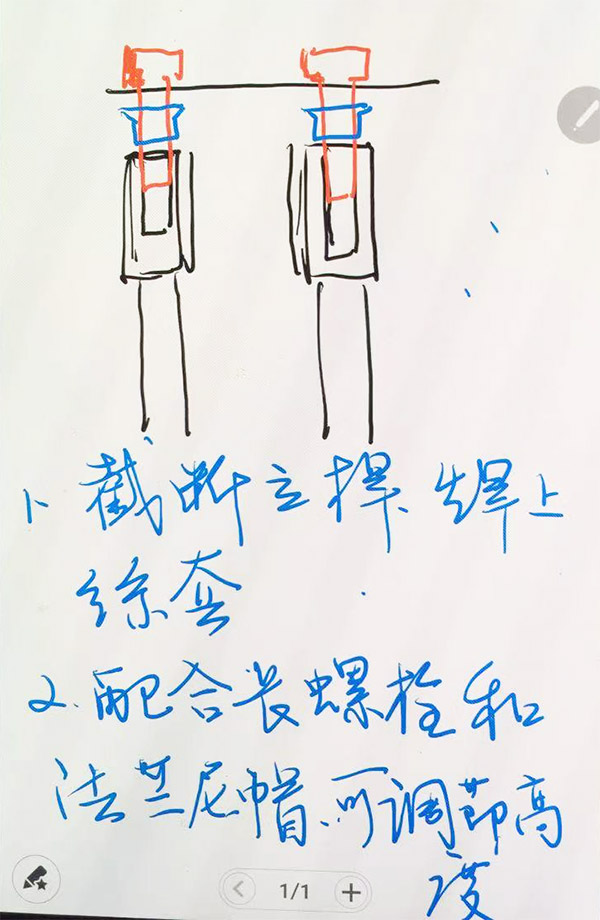 1、截断立桿、焊上
套
2.配合长螺栓和
法兰尼帽、可调节高
度
1/1